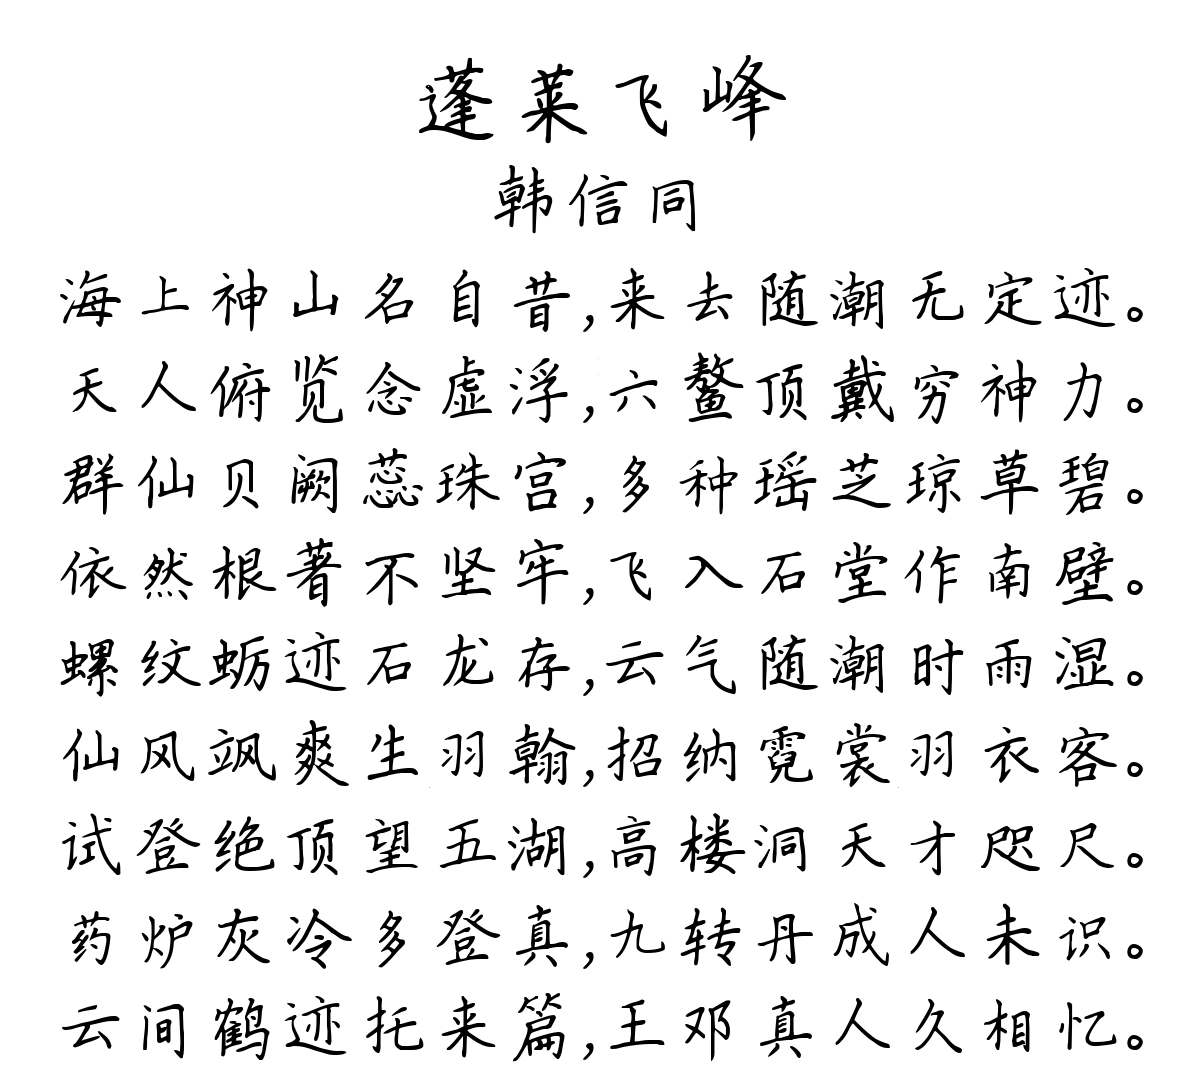 蓬莱飞峰
韩信同
海上神山名自昔,来去随潮无定迹。
天人俯览念虚浮,六鳌顶戴穷神力。
群仙贝阙蕊珠宫,多种瑶芝琼草碧。
依然根著不坚牢,飞入石堂作南壁。
螺纹蛎迹石龙存,云气随潮时雨湿。
仙风飒爽生羽翰,招纳霓裳羽衣客。
试登绝顶望五湖,高楼洞天才咫尺。
药炉灰冷多登真,九转丹成人未识。
云间鹤迹托来篇,王邓真人久相忆。